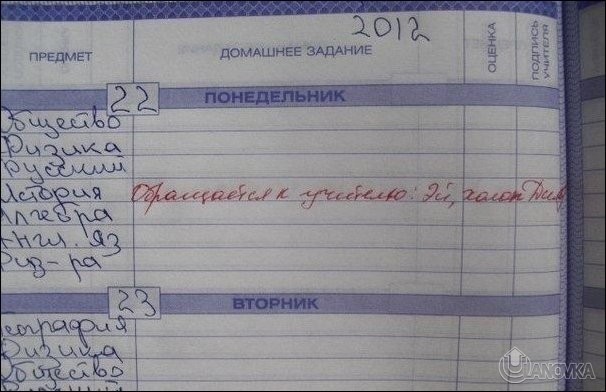 2012
ПРЕДМЕТ ДОМАШНЕЕ ЗАДАНИЕ ОЦЕНКА ПОДПИСЬ УЧИТЕЛЯ
22 ПОНЕДЕЛЬНИК
Общество
Физика
Русский
История Обращается к учителю: Эй, холоп
Алгебра
Англ. яз
Физ-ра
23 ВТОРНИК
География
Физика
Общество
UANOVKA